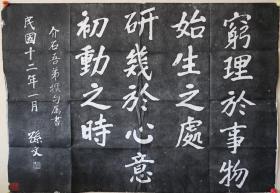 窮理於事物
始生之處
研幾於心意
初動之時
介石吾弟撰句屬書
民國十二年一月
孫文